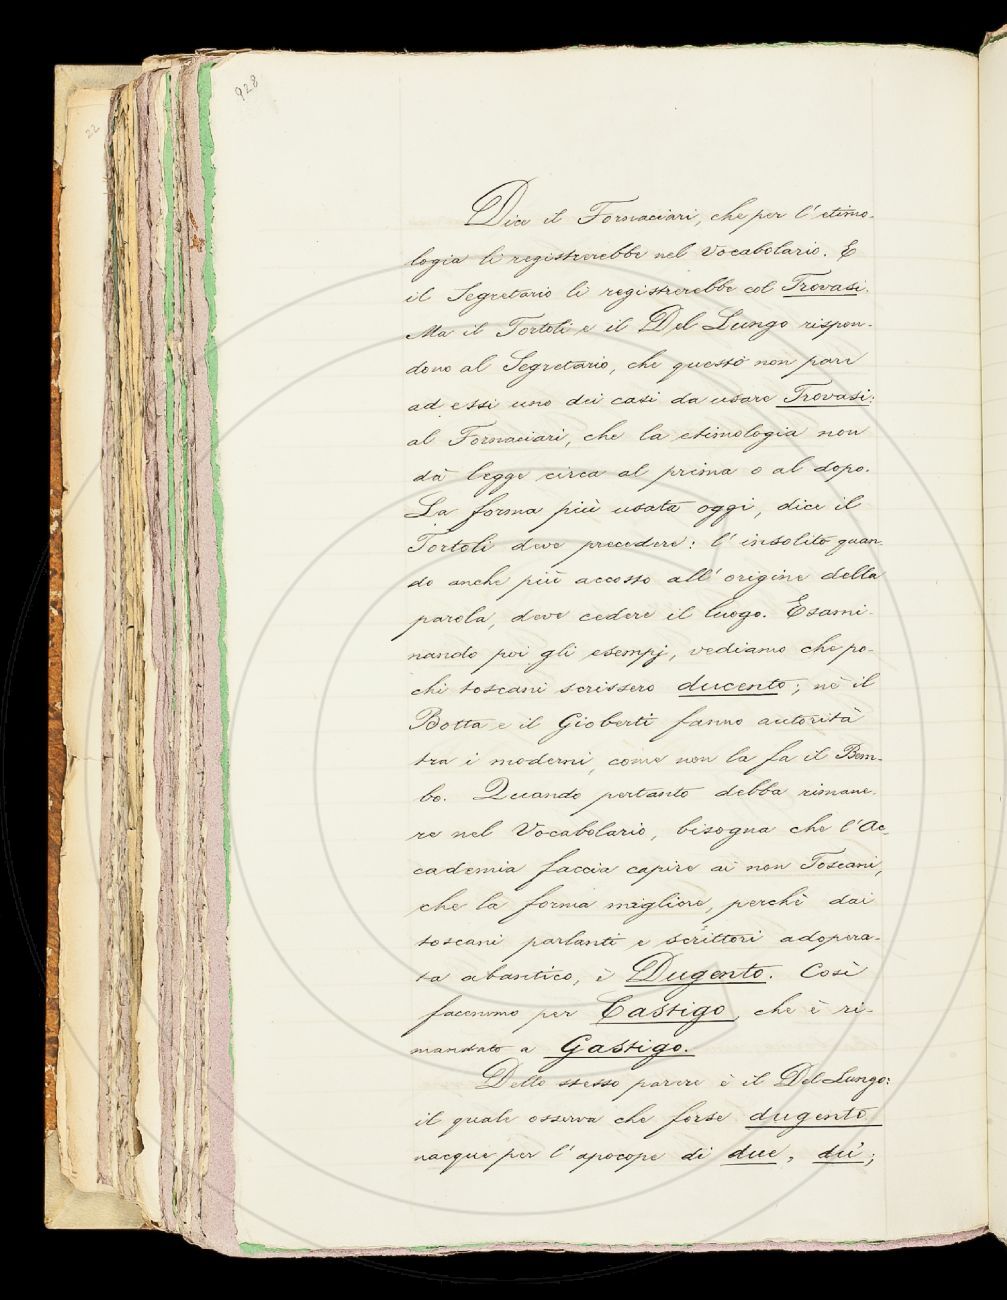 928
22
Dice il Fornaciari, che per l'etimo-
logia li registrerebbe nel Vocabolario. E
il Segretario li registrerebbe col Trovasi.
Ma il Tortoli e il Del Lungo rispon-
dono al Segretario, che questo non pare
ad essi uno dei casi da usare Trovasi:
al Fornaciari, che la etimologia non
dà legge circa al prima o al dopo.
La forma più usata oggi, dice il
Tortoli deve precedere: l'insolito quan-
do anche più accosto all'origine della
parola, deve cedere il luogo. Esami-
nando poi gli esempj, vediamo che po-
chi toscani scrissero ducento; nè il
Botta e il Gioberti fanno autorità
tra i moderni, come non la fa il Bem-
bo. Quando pertanto debba rimane-
re nel Vocabolario, bisogna che l'Ac-
cademia faccia capire ai non Toscani,
che la forma migliore, perchè dai
toscani parlanti e scrittori adopera-
ta abantico, è Dugento. Così
facemmo per Castigo, che è ri-
mandato a Gastigo.
Dello stesso parere è il Del Lungo:
il quale osserva che forse dugento
nacque per l'apocope di due, du';